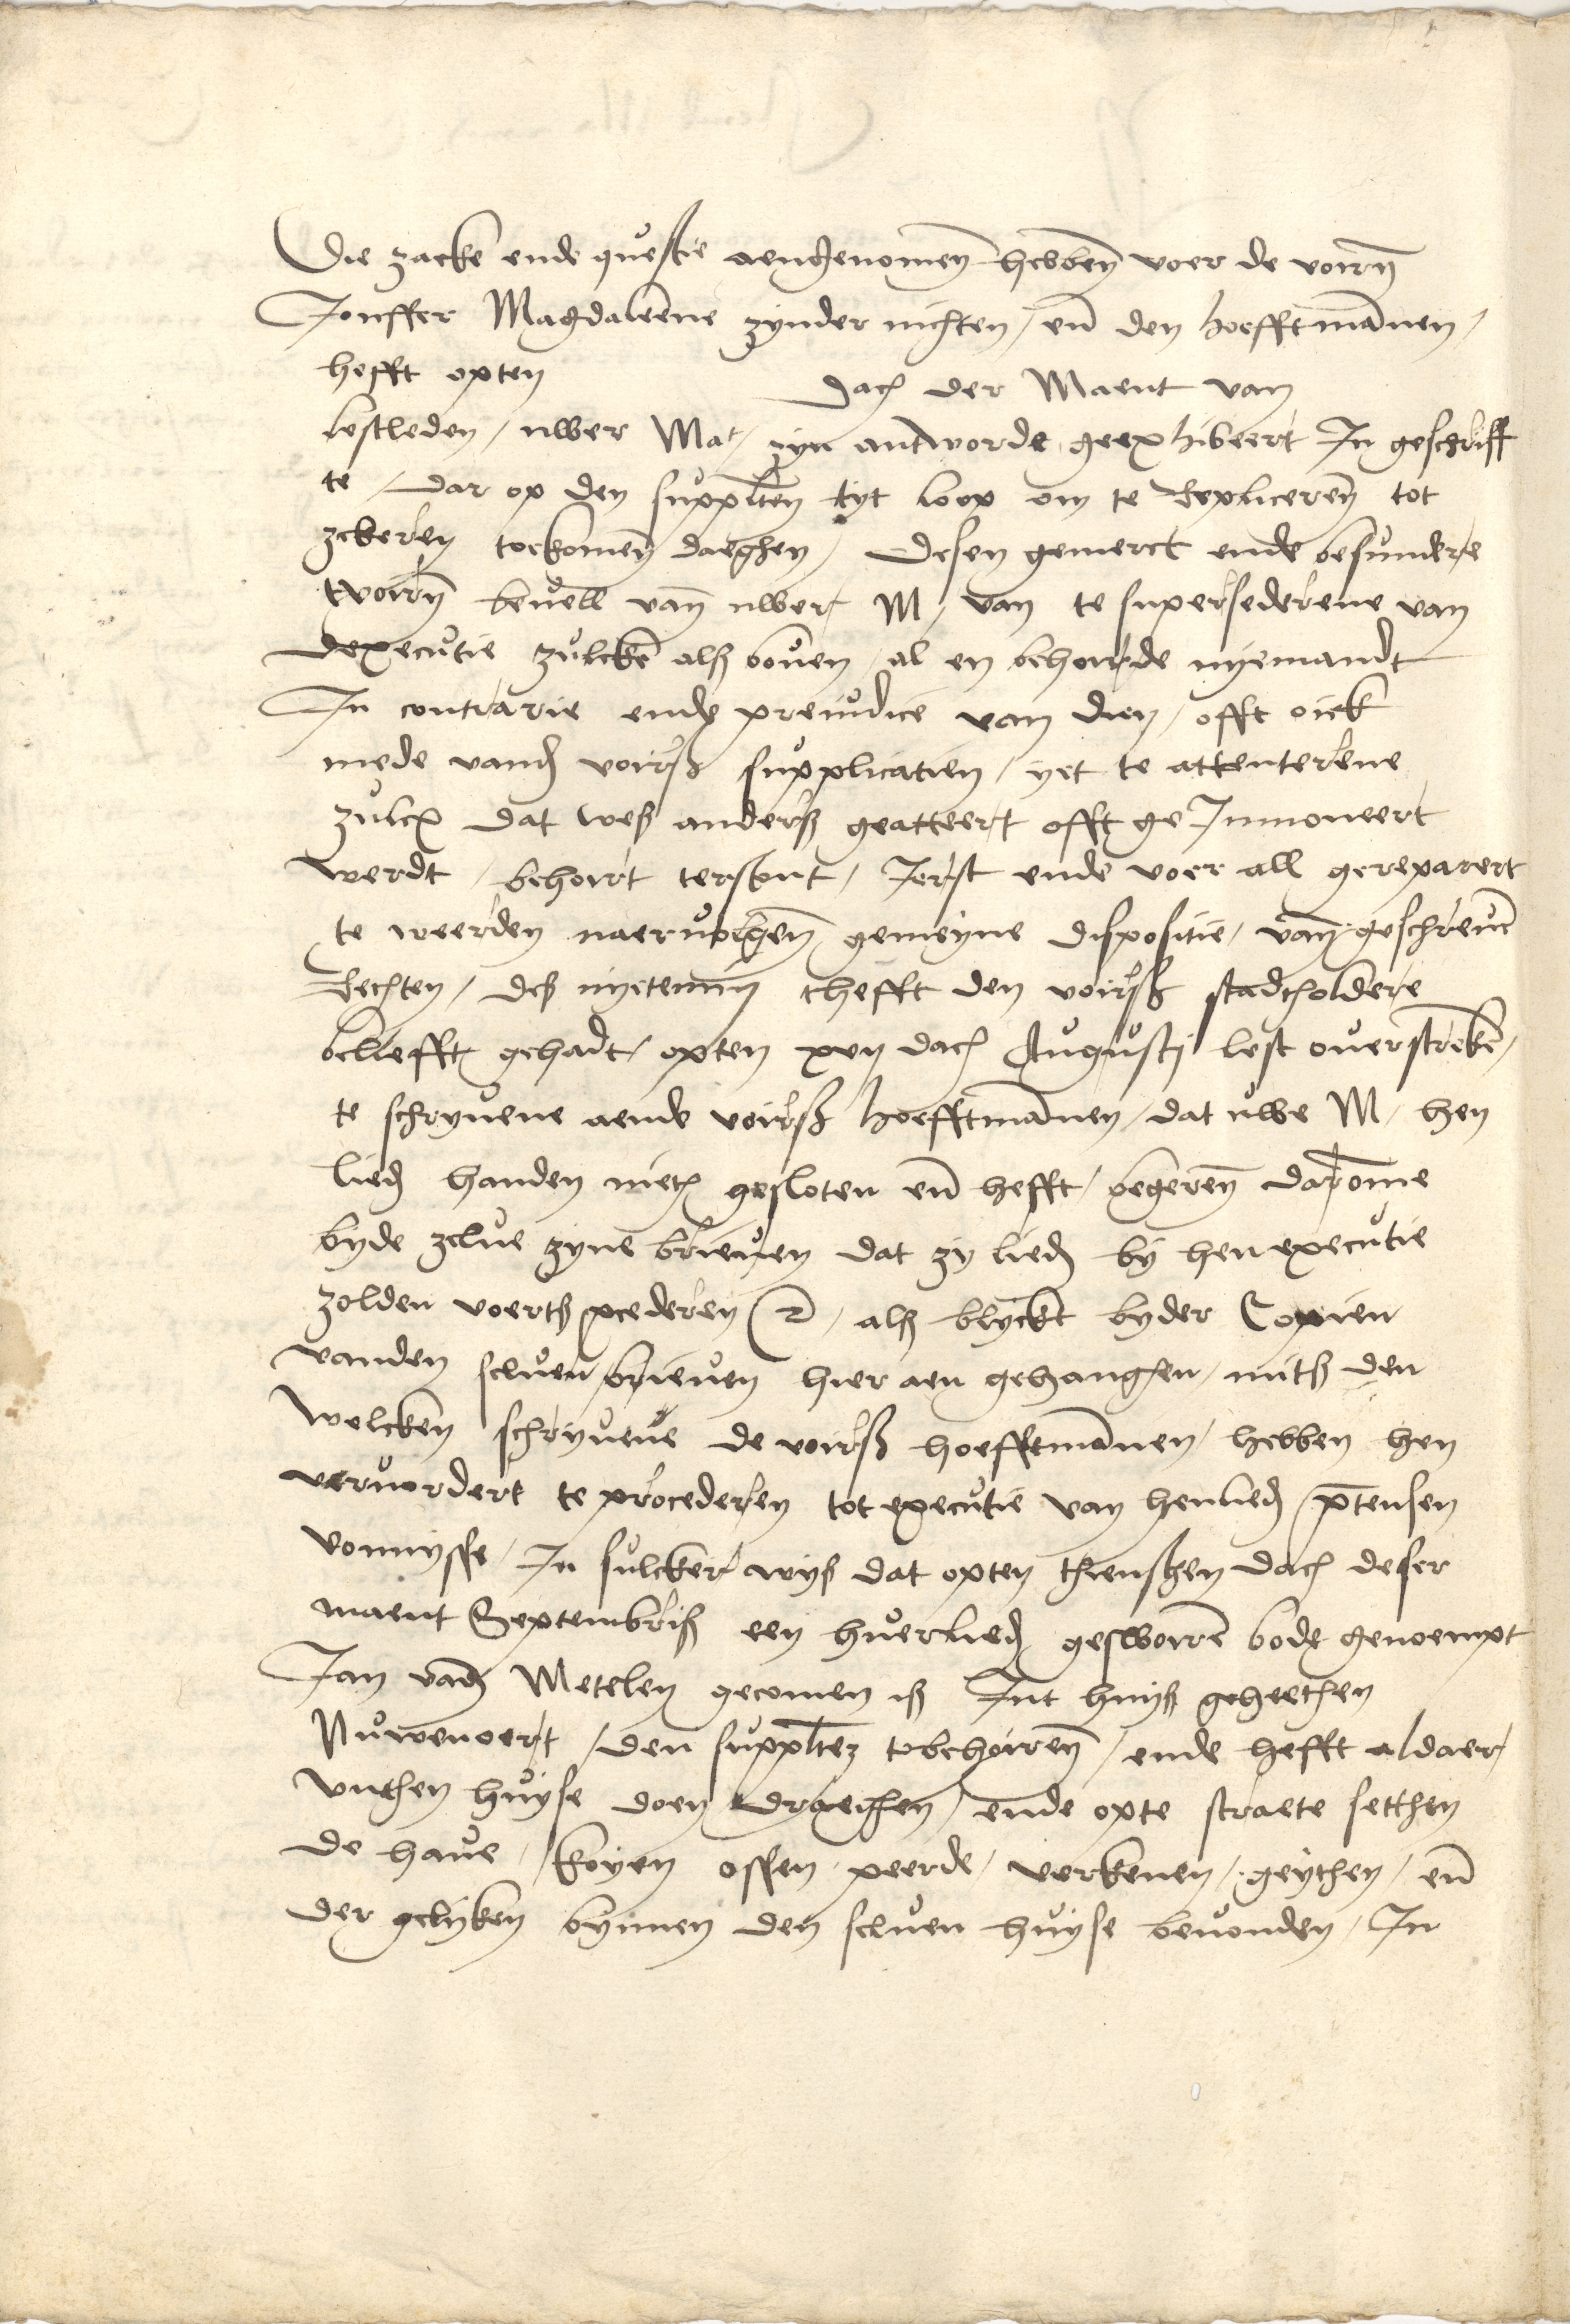 Die zacke ende questie aengenomen hebben voer de voirn
Jonffer Magdaleene zynder nichten / en den hoefftmannen /
hefft opten dach der Maent van
lestleden / uwer Mat / zyn antworde geexhibeert In geschriff
te / dar op den supplten tyt loop om te Repliceren tot
zekeren toekomen daeghen / Desen gemerct ende besundere
tvoirn beuell van uwer M / van te supersederene van
dexecutie zulcke als bouen / al en behoirde nyemandt
In contrarie ende preiudice van dien / offt oick
mede vand voirs supplicatien / yet te attenterene
zulcx dat wes anders geatteert offt ge Innoneert
werdt / behoirt terstont / Jerst ende voer all gereparert
te weerden naeruolgen gemeyne dispositie / van geschreuen
Rechten / des nyetemin thefft den voirs stadtholdere
beliefft gehadt / opten xvii dach Augusti lest ouerstreken /
te schryuene aende voirs hoefftmannen / dat uwe M / hen
lied handen nietz gesloten en hefft / begeren daromme
byde zelue zyne brieuen dat zy lied by hen executie
zolden voerts pcederen &c / als blyckt byder Copien
vanden seluen brieuen hier aen gehanghen / mits den
welcken schryuene de voirs hoefftmannen / hebben hen
veruordert te procederen tot executie van henlied ptensen
vonnysse / In sulcker wys dat opten thiensten dach deser
maent Septembris een huerlied geswoiren bode genoempt
Jan vand Metelen gecomen is Int huys geheethen
Nuwenoert / den supplten tobehoiren / ende hefft aldaer /
vuthen huyse doen draeghen / ende opte straete setthen
de haue / koyen ossen peerde / verkenen / geythen / en
der gelyken bynnen den seluen huyse beuonden / In